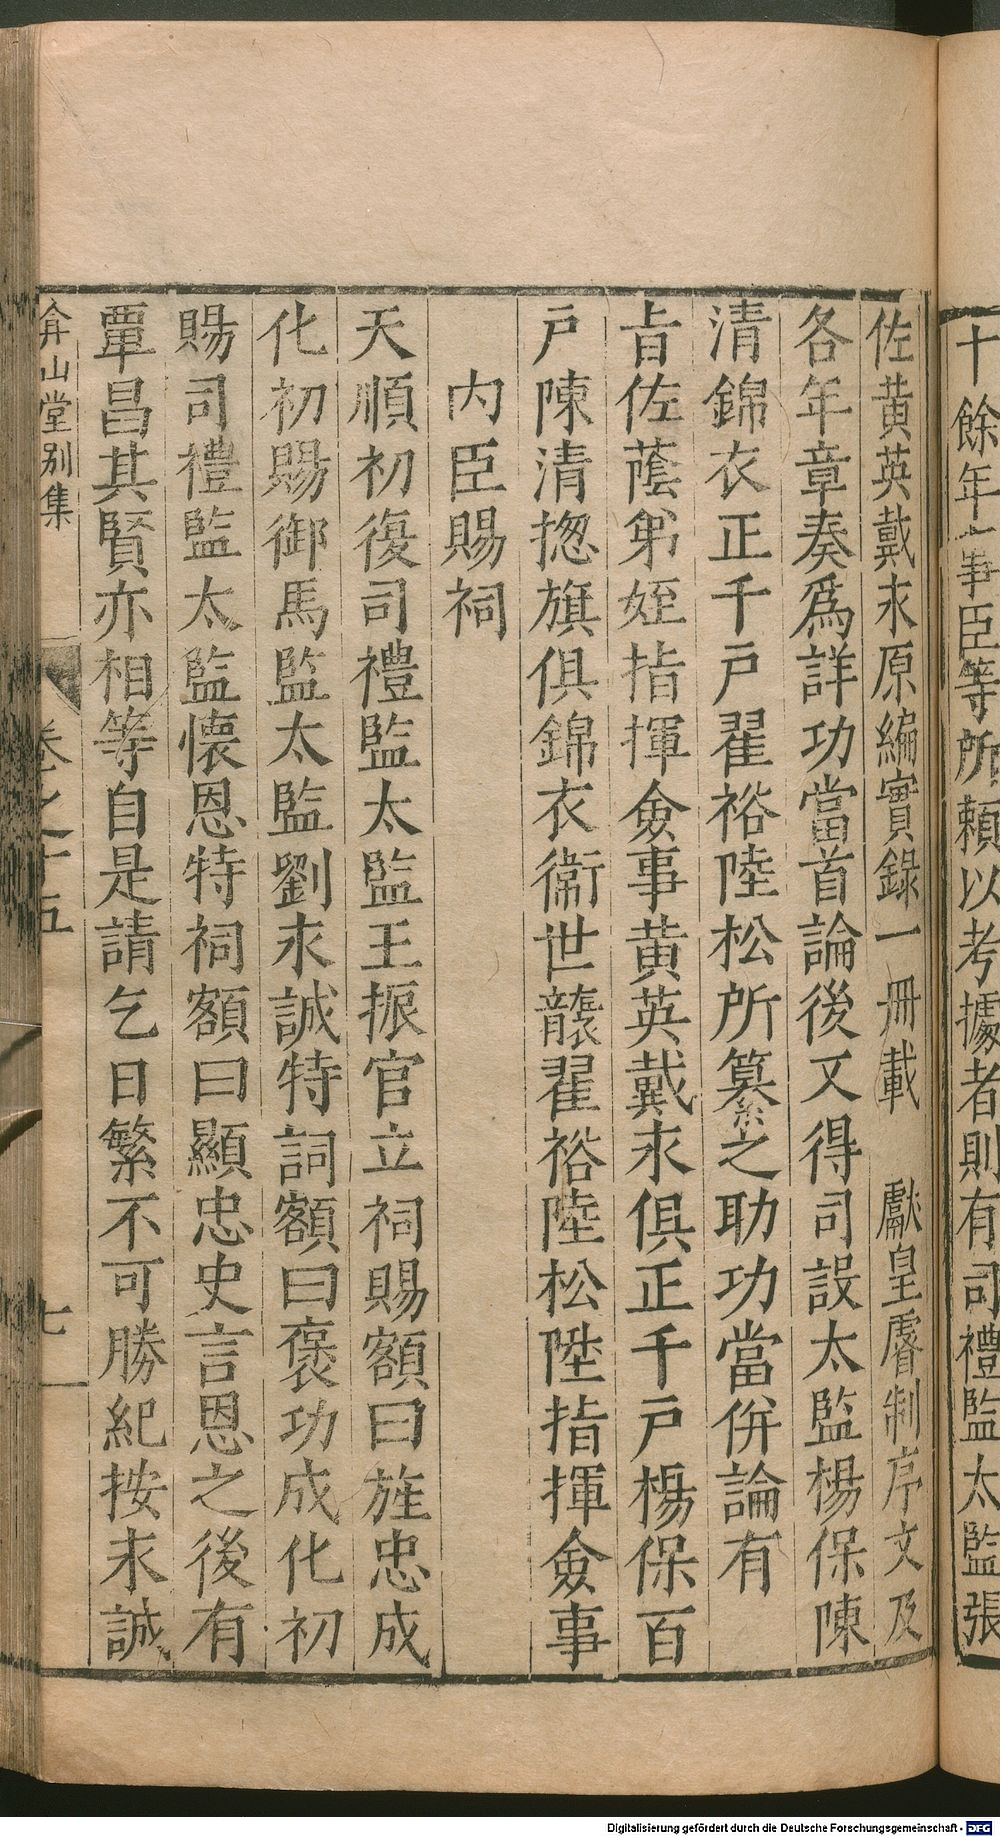 十餘年事臣等所賴以考據者則有司禮監太監張
佐黃英戴永原編實錄一冊載　獻皇睿制序文及
各年章奏爲詳功當首論後又得司設太監楊保陳
清錦衣正千戶翟裕陸松所纂之助功當併論有
旨佐蔭弟姪指揮僉事黃英戴永俱正千戶楊保百
戶陳清揔旗俱錦衣衞世襲翟裕陸松陞指揮僉事
內臣賜祠
天順初復司禮監太監王振官立祠賜額曰旌忠成
化初賜御馬監太監劉永誠特詞額曰褒功成化初
賜司禮監太監懐恩特祠額曰顯忠史言恩之後有
覃昌其賢亦相等自是請乞日繁不可勝紀按永誠
弇山堂別集
卷之十五
七
Digitalisierung gefördert durch die Deutsche Forschungsgemeinschaft - DFG